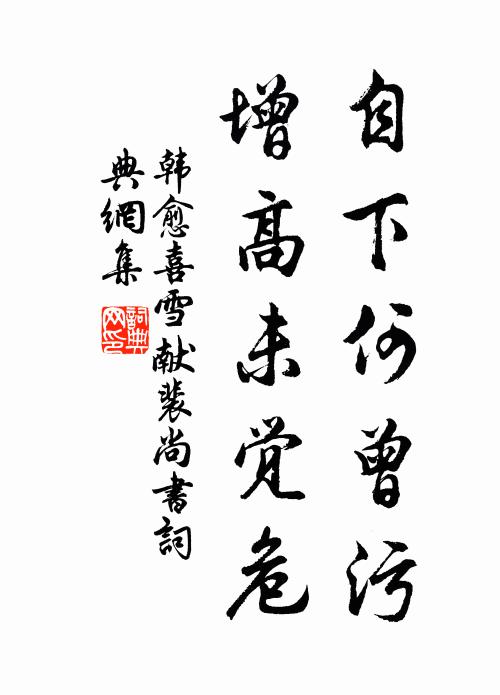 自下何曾污
增高未觉危
韩愈喜雪献裴尚书詞
典網集
詞典网印